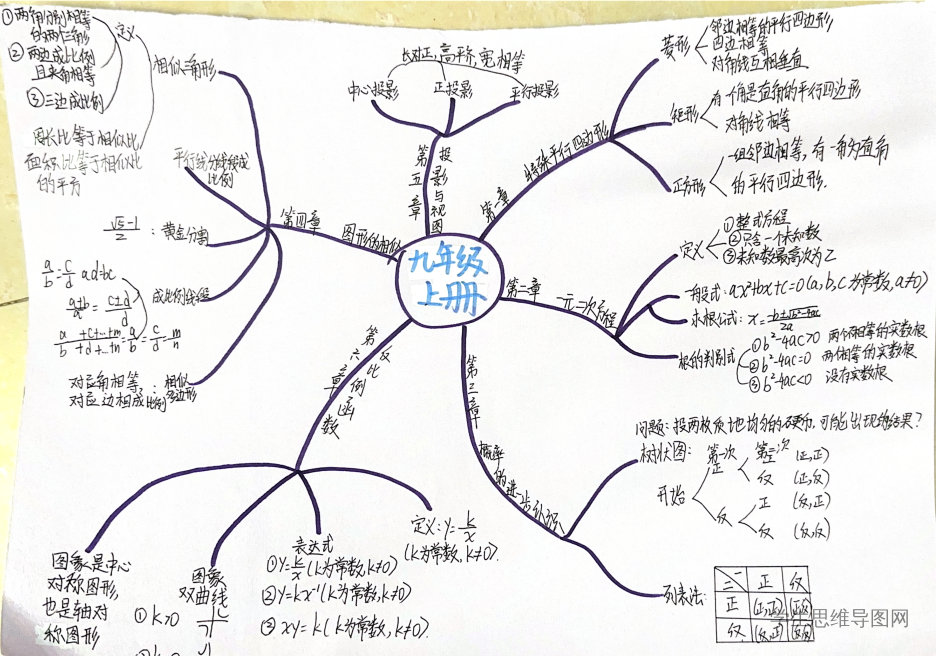 九年级
上册
第一章
特殊平行四边形
菱形
邻边相等的平行四边形
四边相等
对角线互相垂直
矩形
有一个角是直角的平行四边形
对角线相等
正方形
一组邻边相等,有一角为直角
的平行四边形.
第二章
一元二次方程
定义
①整式方程
②只含一个未知数
③未知数最高次为2
一般式:ax²+bx+c=0(a,b,c为常数,a≠0)
求根公式:x=
2a
根的判别式
①b²-4ac>0 两个不相等的实数根
②b²-4ac=0 两个相等的实数根
③b²-4ac<0 没有实数根
第三章
概率的进一步认识
问题:投两枚质地均匀的硬币,可能出现的结果?
树状图: 第一次 第二次
开始
正 正 (正,正)
反 (正,反)
反 正 (反,正)
反 (反,反)
列表法:
一 二 正 反
正 (正,正) (正,反)
反 (反,正) (反,反)
第四章
图形的相似
相似三角形
定义
①两角分别相等
的两个三角形
②两边成比例
且夹角相等
③三边成比例
周长比等于相似比
面积比等于相似比
的平方
平行线分线段成
比例
√5-1/2:黄金分割
成比例线段
a/b=c/d ad=bc
a±b/b=c±d/d
a+c+…+m/b+d+…+n=a/b=c/d=m/n
对应角相等,:相似
对应边相成比例 多边形
第五章
投影与视图
长对正,高平齐,宽相等
中心投影
正投影
平行投影
第六章
反比例函数
图象是中心
对称图形,
也是轴对
称图形
图象
双曲线
①k>0
②k<0
表达式
①y=k/x(k为常数,k≠0)
②y=kx⁻¹(k为常数,k≠0)
③xy=k(k为常数,k≠0).
定义:y=k/x
(k为常数,k≠0).
思维导图网